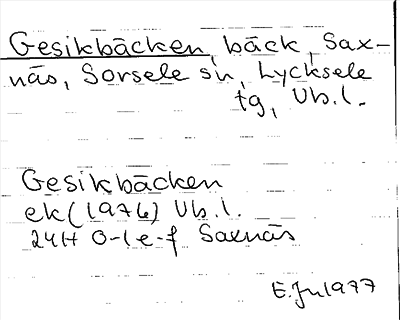 Gesikbäcken, bäck, Sax-
näs, Sorsele sn, Lycksele
tg, Vb.l.
Gesikbäcken
ek (1976) Vb.l.
24H 0-1 e-f Saxnäs
E.Ju 1977